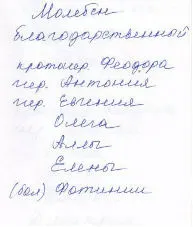 Молебен
благодарственной
протоиер. Феодора
иер. Антония
иер. Евгения
Олега
Аллы
Елены
(бол) Фотинии